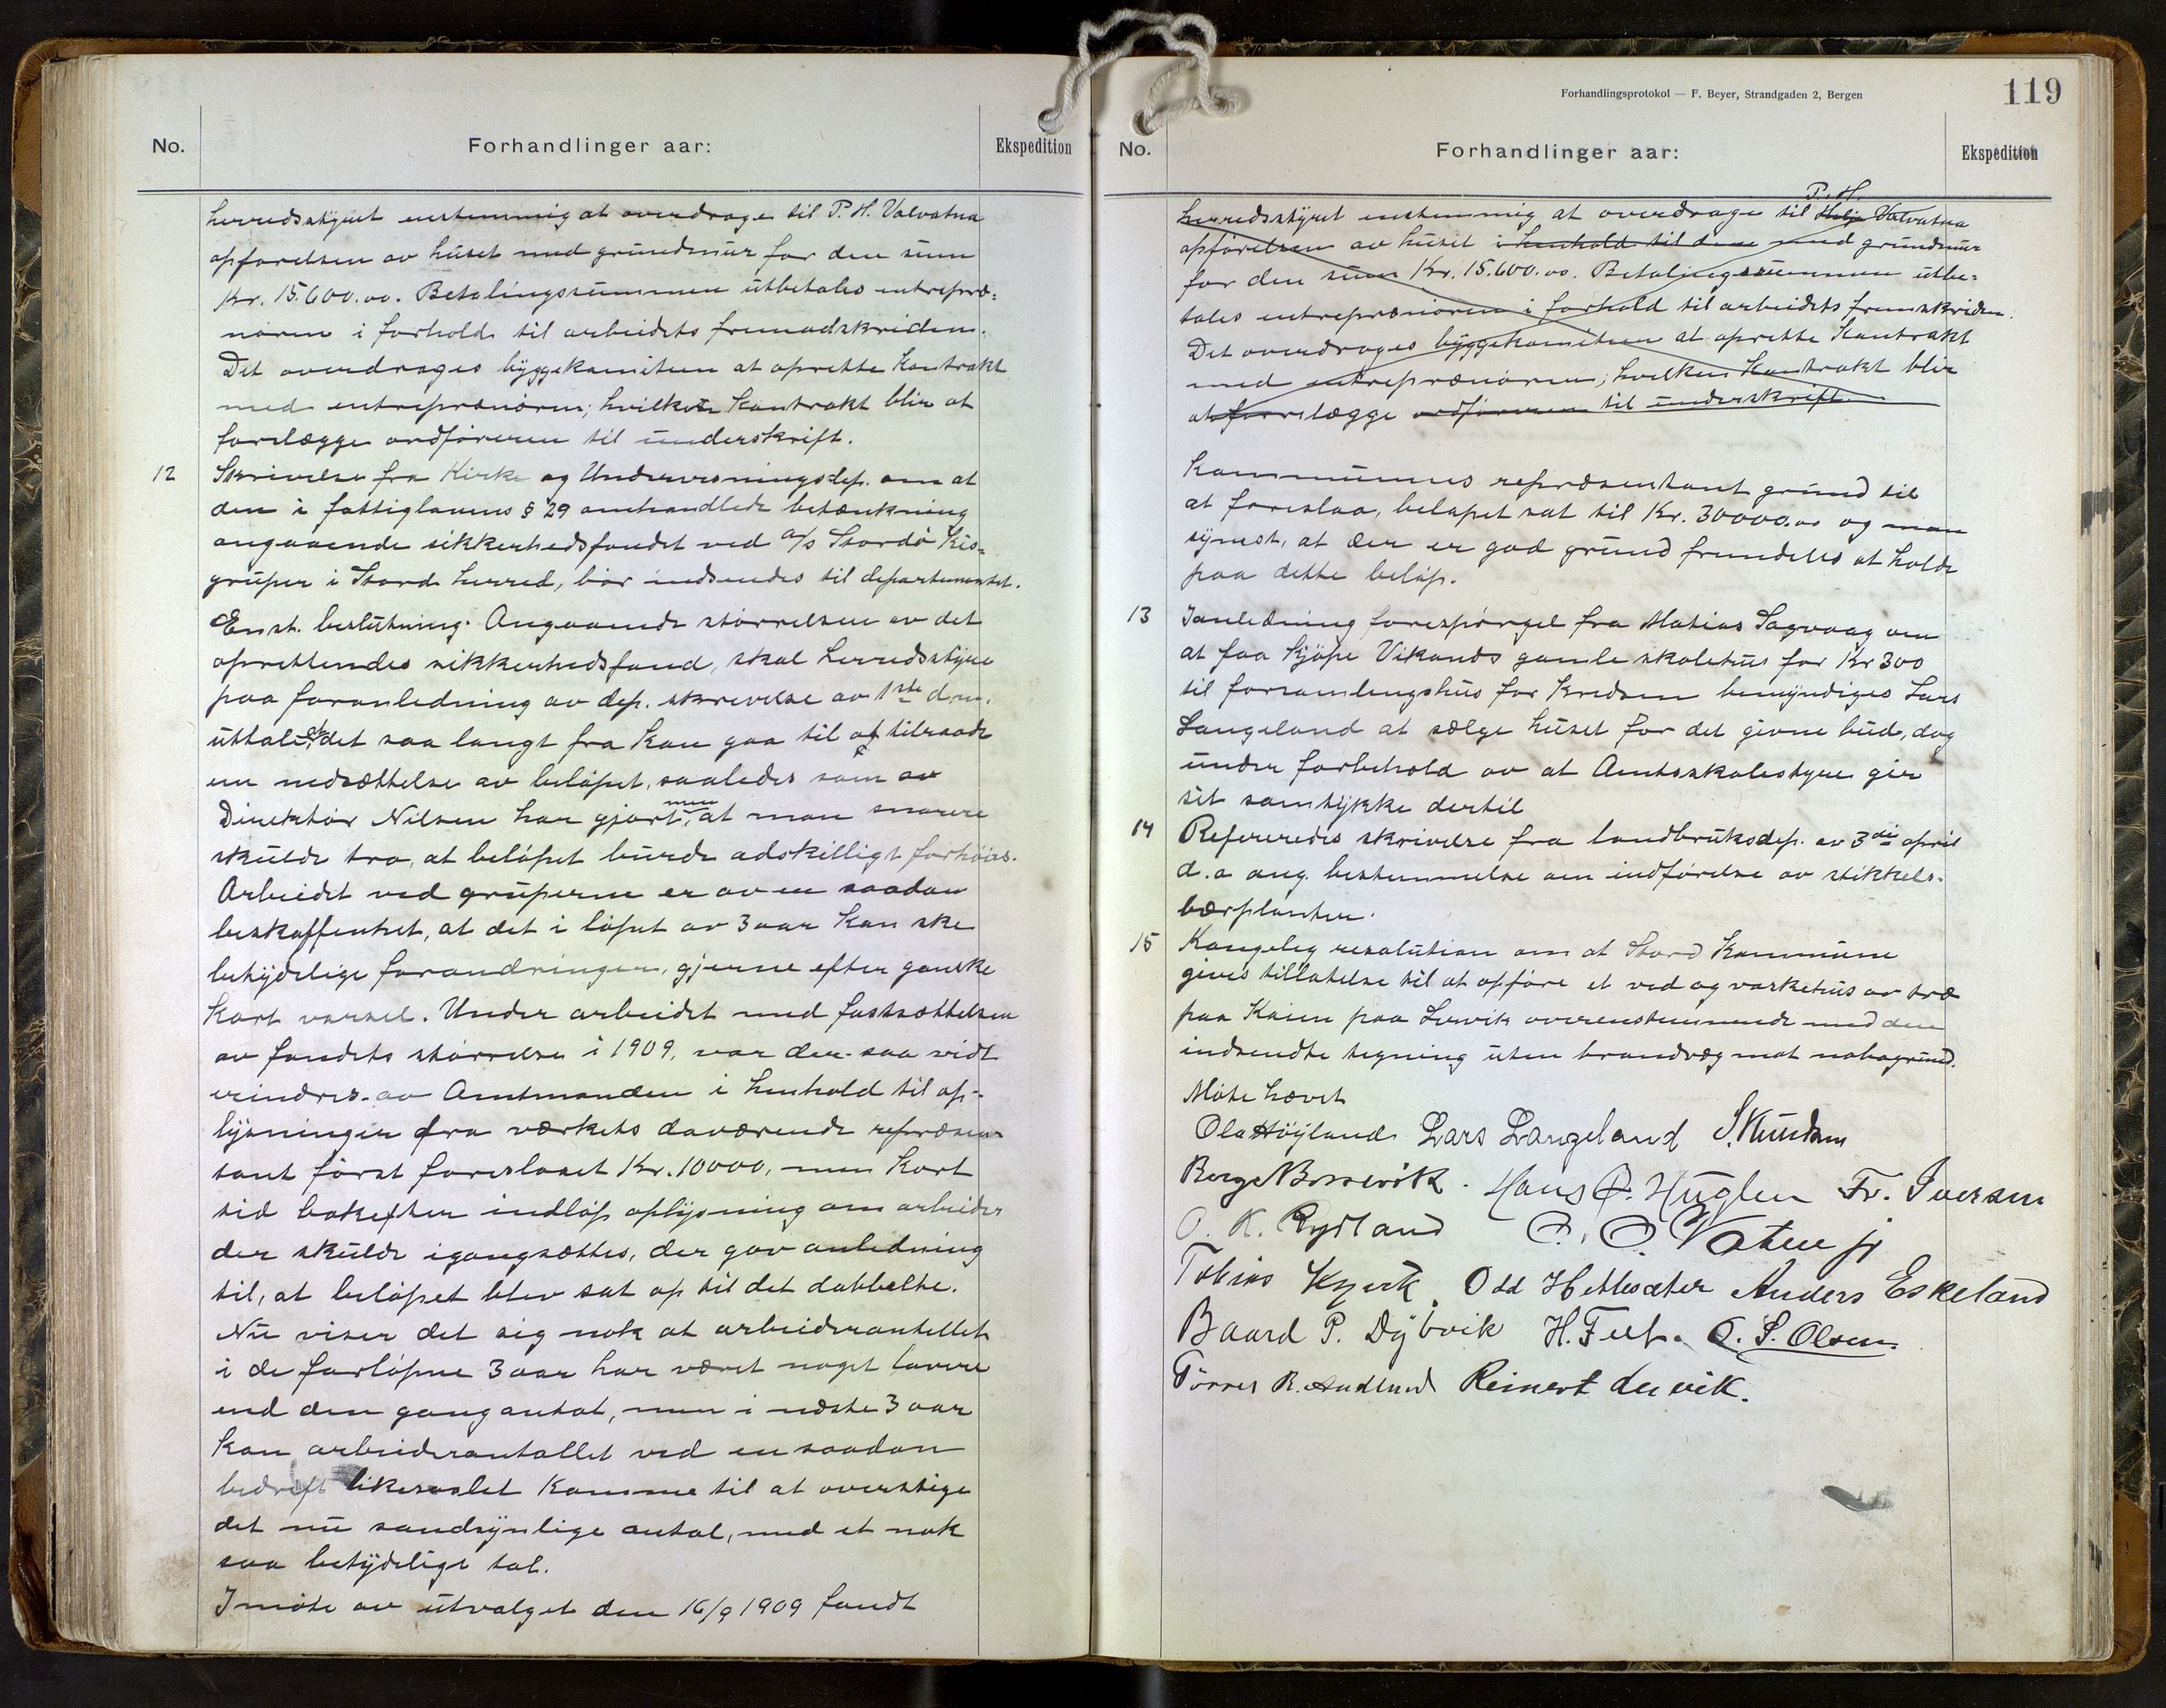 No. Forhandlinger aar: Ekspedition
herredsstyret enstemmig at overdrage til P. H. Valvatna
opførelsen av huset med grundmur for den sum
Kr. 15.600.00. Betalingssummen utbetales entrepræ-
nøren i forhold til arbeidets fremadskriden.
Det overdrages byggekomiteen at oprette Kontrakt
med entreprænøren; hvilken Kontrakt blir at
forelægge ordføreren til underskrift.
12 Skrivelse fra Kirke og Undervisningsdep. om at
den i fattiglovens § 29 omhandlede betænkning
angaaende sikkerhedsfondet ved a/s Stordø Kis-
gruper i Stord herred, bør indsendes til departementet.
Enst. beslutning: Angaaende størrelsen av det
oprettendes sikkerhedsfond, skal herredsstyre
paa foranledning av dep. skrivelse av 1ste dm.
uttale, at det saa langt fra kan gaa til at tilraade
en nedsættelse av beløpet, saaledes som av
Direktør Nilsen har gjort, men at man snarere
skulde tro, at beløpet burde adskilligt forhøies.
Arbeidet ved gruperne er av en saadan
beskaffenhet, at det i løpet av 3 aar kan ske
betydelige forandringer, gjerne efter ganske
kort varsel. Under arbeidet med fastsættelsen
av fondets størrelse i 1909, var der saa vidt
erindres av Amtmanden i henhold til op-
lysninger fra værkets daværende repræsen-
tant først foreslaaet Kr. 10000, men kort
tid bakefter indløp oplysning om arbeider
der skulde igangsættes, der gav anledning
til, at beløpet blev sat op til det dobbelte.
Nu viser det sig nok at arbeiderantallet
i de forløpne 3 aar har været noget lavere
end den gang antat, men i næste 3 aar
kan arbeiderantallet ved en saadan
bedrift likesaalet komme til at overstige
det nu sandsynlige antal, med et nok
saa betydelige tal.
I møte av utvalget den 16/9 1909 fandt
Forhandlingsprotokol — F. Beyer, Strandgaden 2, Bergen
119
No. Forhandlinger aar: Ekspedition
P. H.
herredsstyret enstemmig at overdrage til Helje Valvatna
opførelsen av huset i henhold til dene med grundmur
for den sum Kr. 15.600.00. Betalingssummen utbe-
tales entreprænøren i forhold til arbeidets fremskriden.
Det overdrages byggekomiteen at oprette Kontrakt
med entreprænøren; hvilken Kontrakt blir
at forelægge ordføreren til underskrift
Kommunens repræsentant grund til
at foreslaa, beløpet sat til Kr. 30000.00 og man
synest, at der er god grund fremdeles at holde
paa dette beløp.
13 I anledning forespørgsel fra Matias Sagvaag om
at faa kjøpe Vikands gamle skolehus for Kr 300
til forsamlingshus for kredsen bemyndiges Lars
Langeland at sælge huset for det givne bud, dog
under forbehold av at Amtsskolestyre gir
sit samtykke dertil
14 Refereredes skrivelse fra landbruksdep. av 3die april
d. a ang. bestemmelse om indførelse av stikkels-
bærplanter.
15 Kongeleg resolution om at Stord Kommune
gives tillatelse til at opføre et ved og vaskehus av træ
paa Kaien paa Lervik overenstemmende med den
indsendte tegning uten brandvæg mot nabogrund.
Møte hævet
Ola Høyland Lars Langeland S. Knudsen
Berge Børsevik. Hans P. Huglen Fr. Iversen
O. K. Rydland O. O. Vatne jr
Tobias Kyvik. Odd Hettesæter Anders Eskeland
Baard P. Dybvik H. Feet. O. S. Olsen.
Tørres R. Aadland Reinert Lervik.